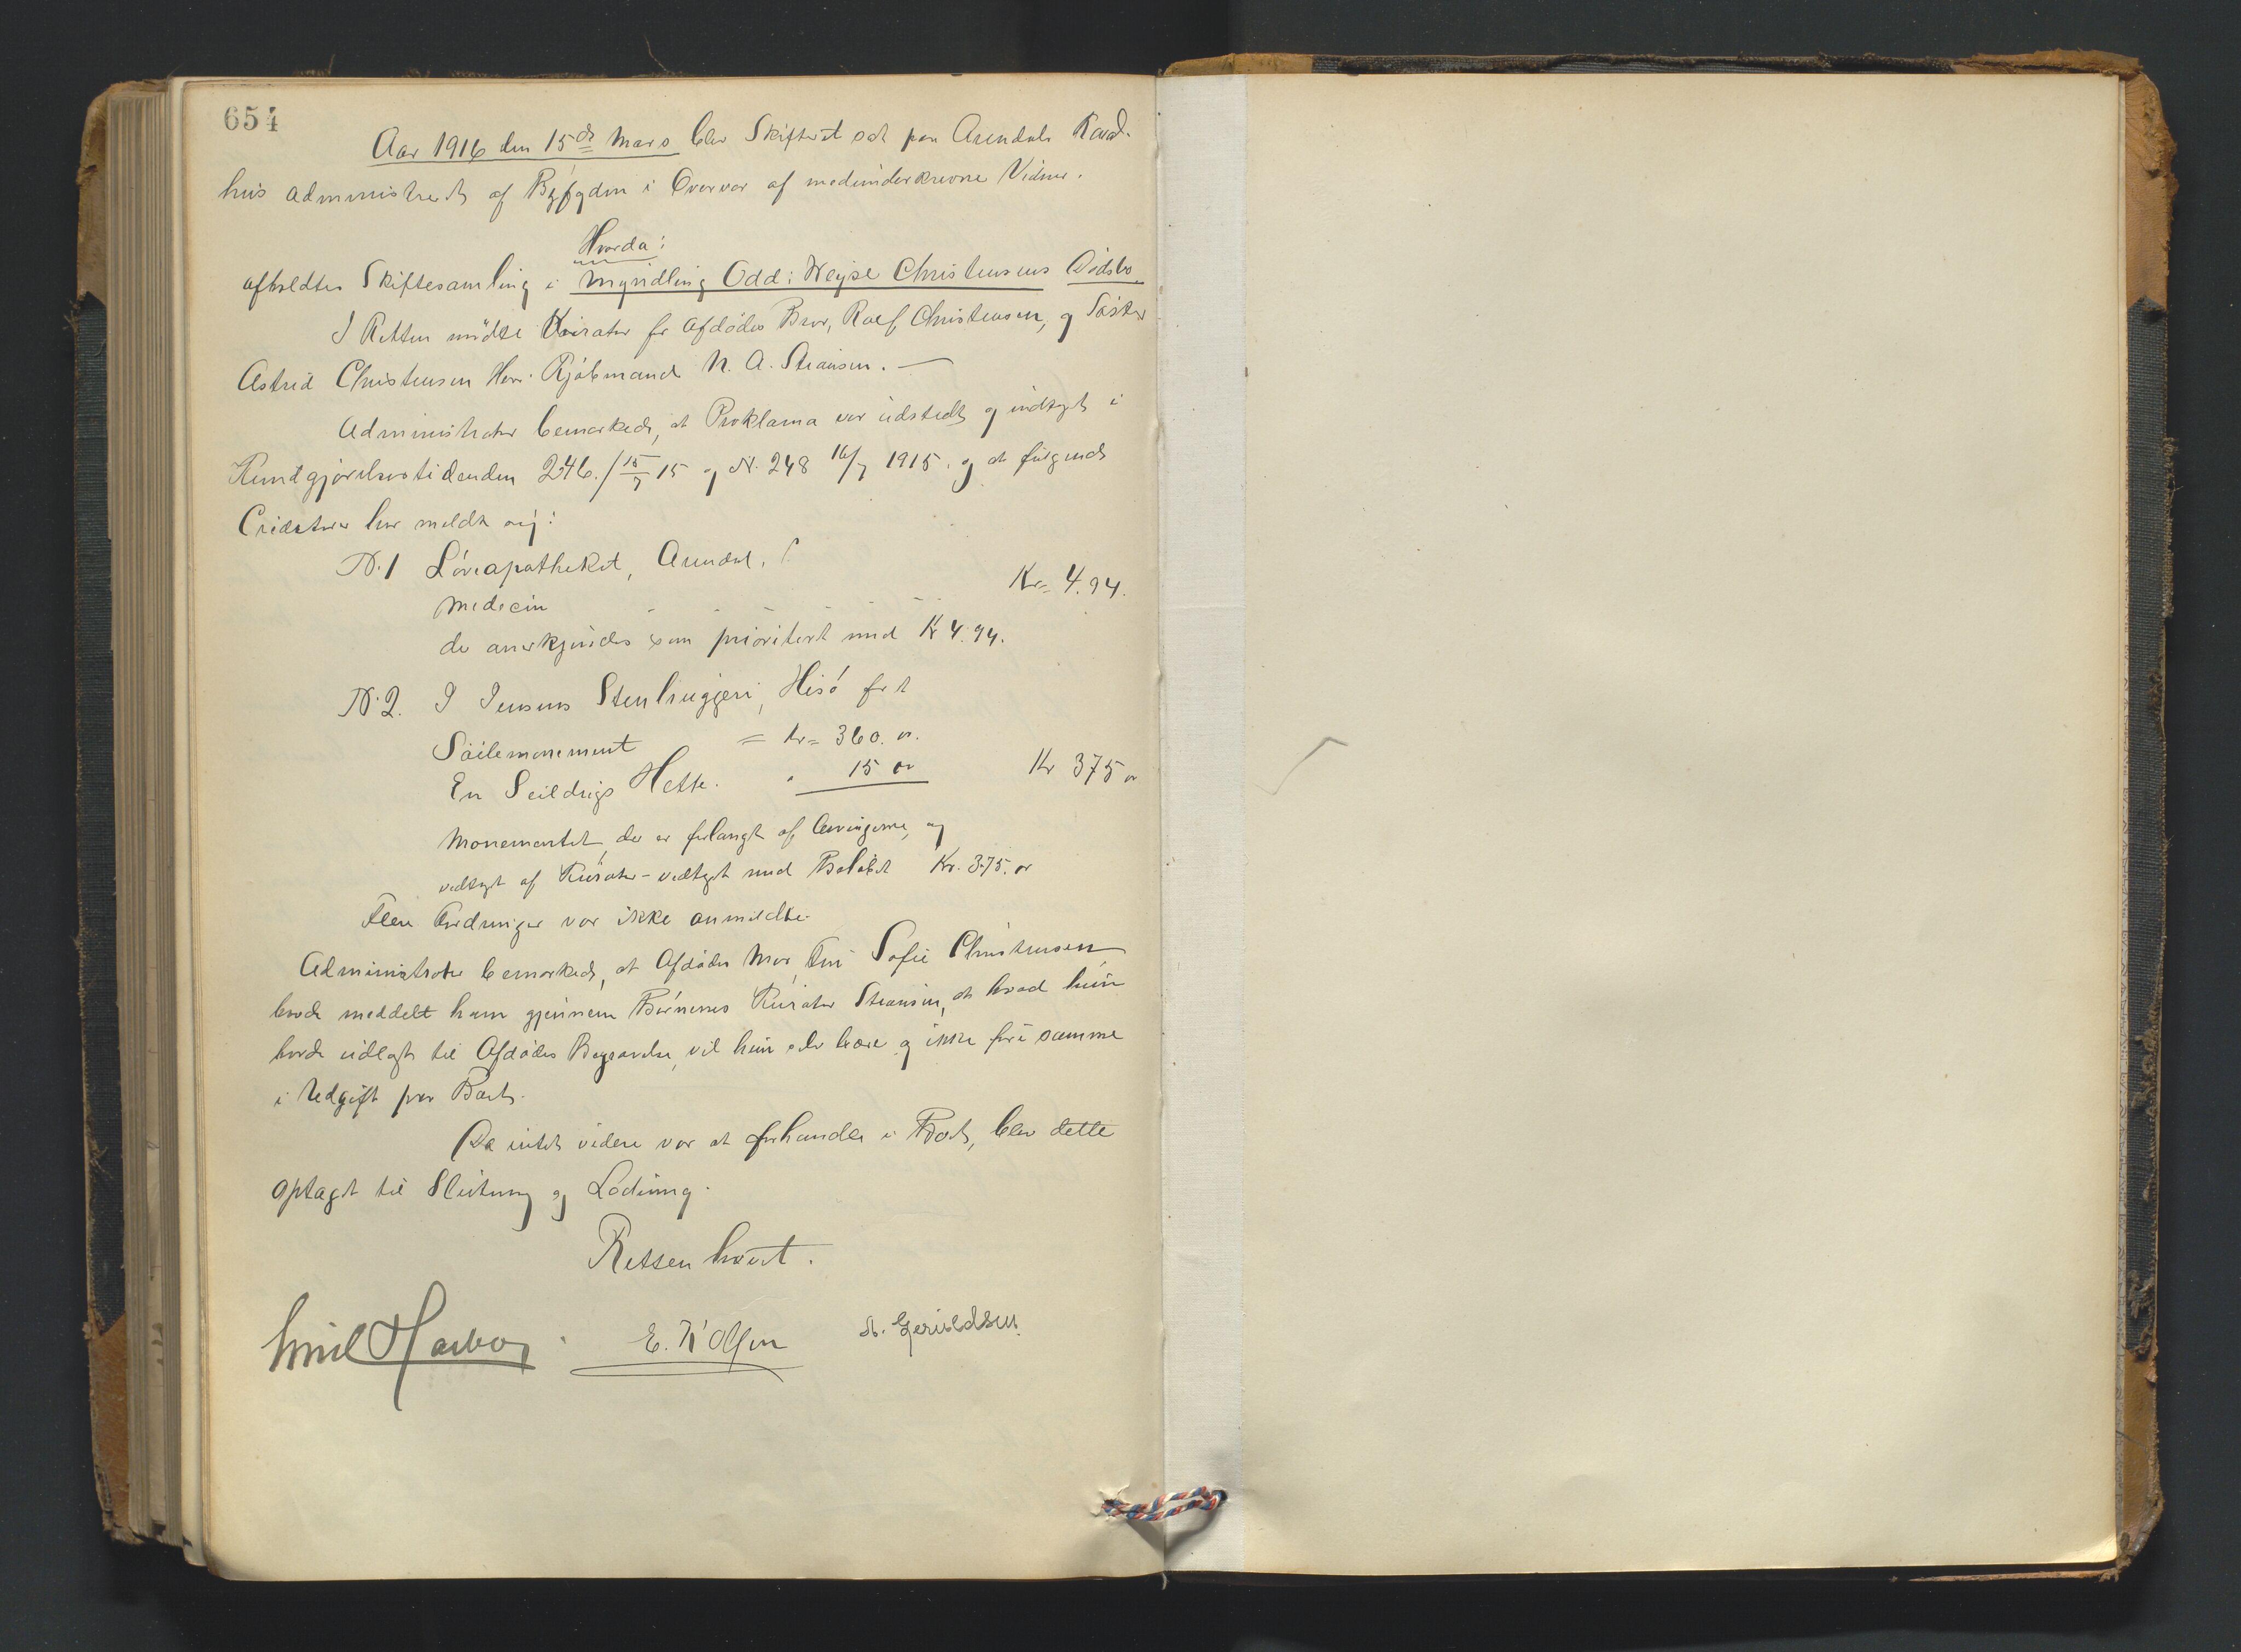 654
Aar 1916 den 15de Mars blev Skifteret sat paa Arendals Raad-
hus administreret af Byfogden i Overvær af medunderskrevne Vidner.
Hvorda:
afholdtes Skiftesamling i Myndling Odd Christensens Dödsbo
I Retten mödte Kurator for Afdödes Bror, Rolf Christensen, og Söster
Astrid Christensen Herr Kjöbmand N. A. Stiansen. —
Administrator bemærkede, at Proklama var udstedt og indtaget i
Kundgjörelsestidenden 246./15/7 15 og N. 248 16/7 1915. og at fölgende
Creditorer har meldt sig:
N. 1 Löveapotheket, Arendal,
Medecin - - - - - - Kr= 4.94.
der anerkjendes som prioritert med Kr 4.94.
N. 2. I Jensens Stenhuggeri, Hisö for et
Söilemonement = Kr= 360. "
En Seildugs Hette. " 15 " Kr 375 "
Monementet, der er forlangt af Arvingerne, og
vedtaget af Kurator - vedtaget med Belöbet Kr. 375. "
Flere Fordringer var ikke anmeldte.
Administrator bemærkede, at Afdödes Mor, Fru Sofie Christensen,
havde meddelt ham gjennem Börnenes Kurator Stiansen, at hvad hun
havde udlagt til Afdödes Begravelse, vil hun selv bære og ikke före samme
i Udgift paa Boet.
Da intet videre var at forhandle i Boet, blev dette
optaget til Slutning og Lodning.
Retten hævet.
Emil Harboe. E. K Olsen N. Gerivldsen.